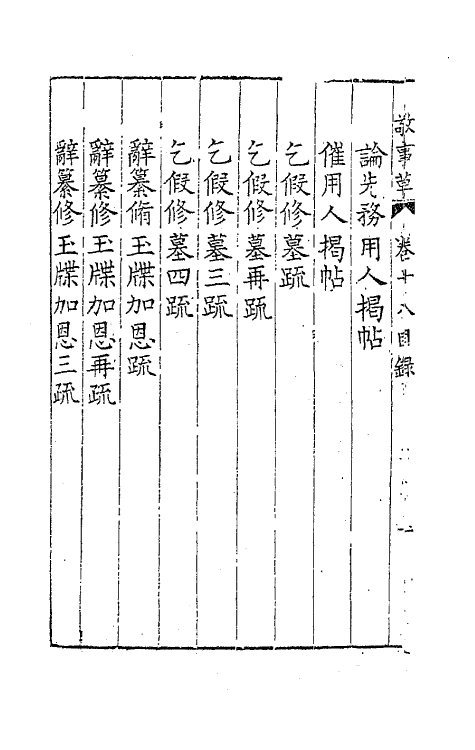 敬事草 卷十八目錄
論先務用人揭帖
催用人揭帖
乞假修墓疏
乞假修墓再疏
乞假修墓三疏
乞假修墓四疏
辭纂脩玉牒加恩疏
辭纂修玉牒加恩再疏
辭纂修玉牒加恩三疏